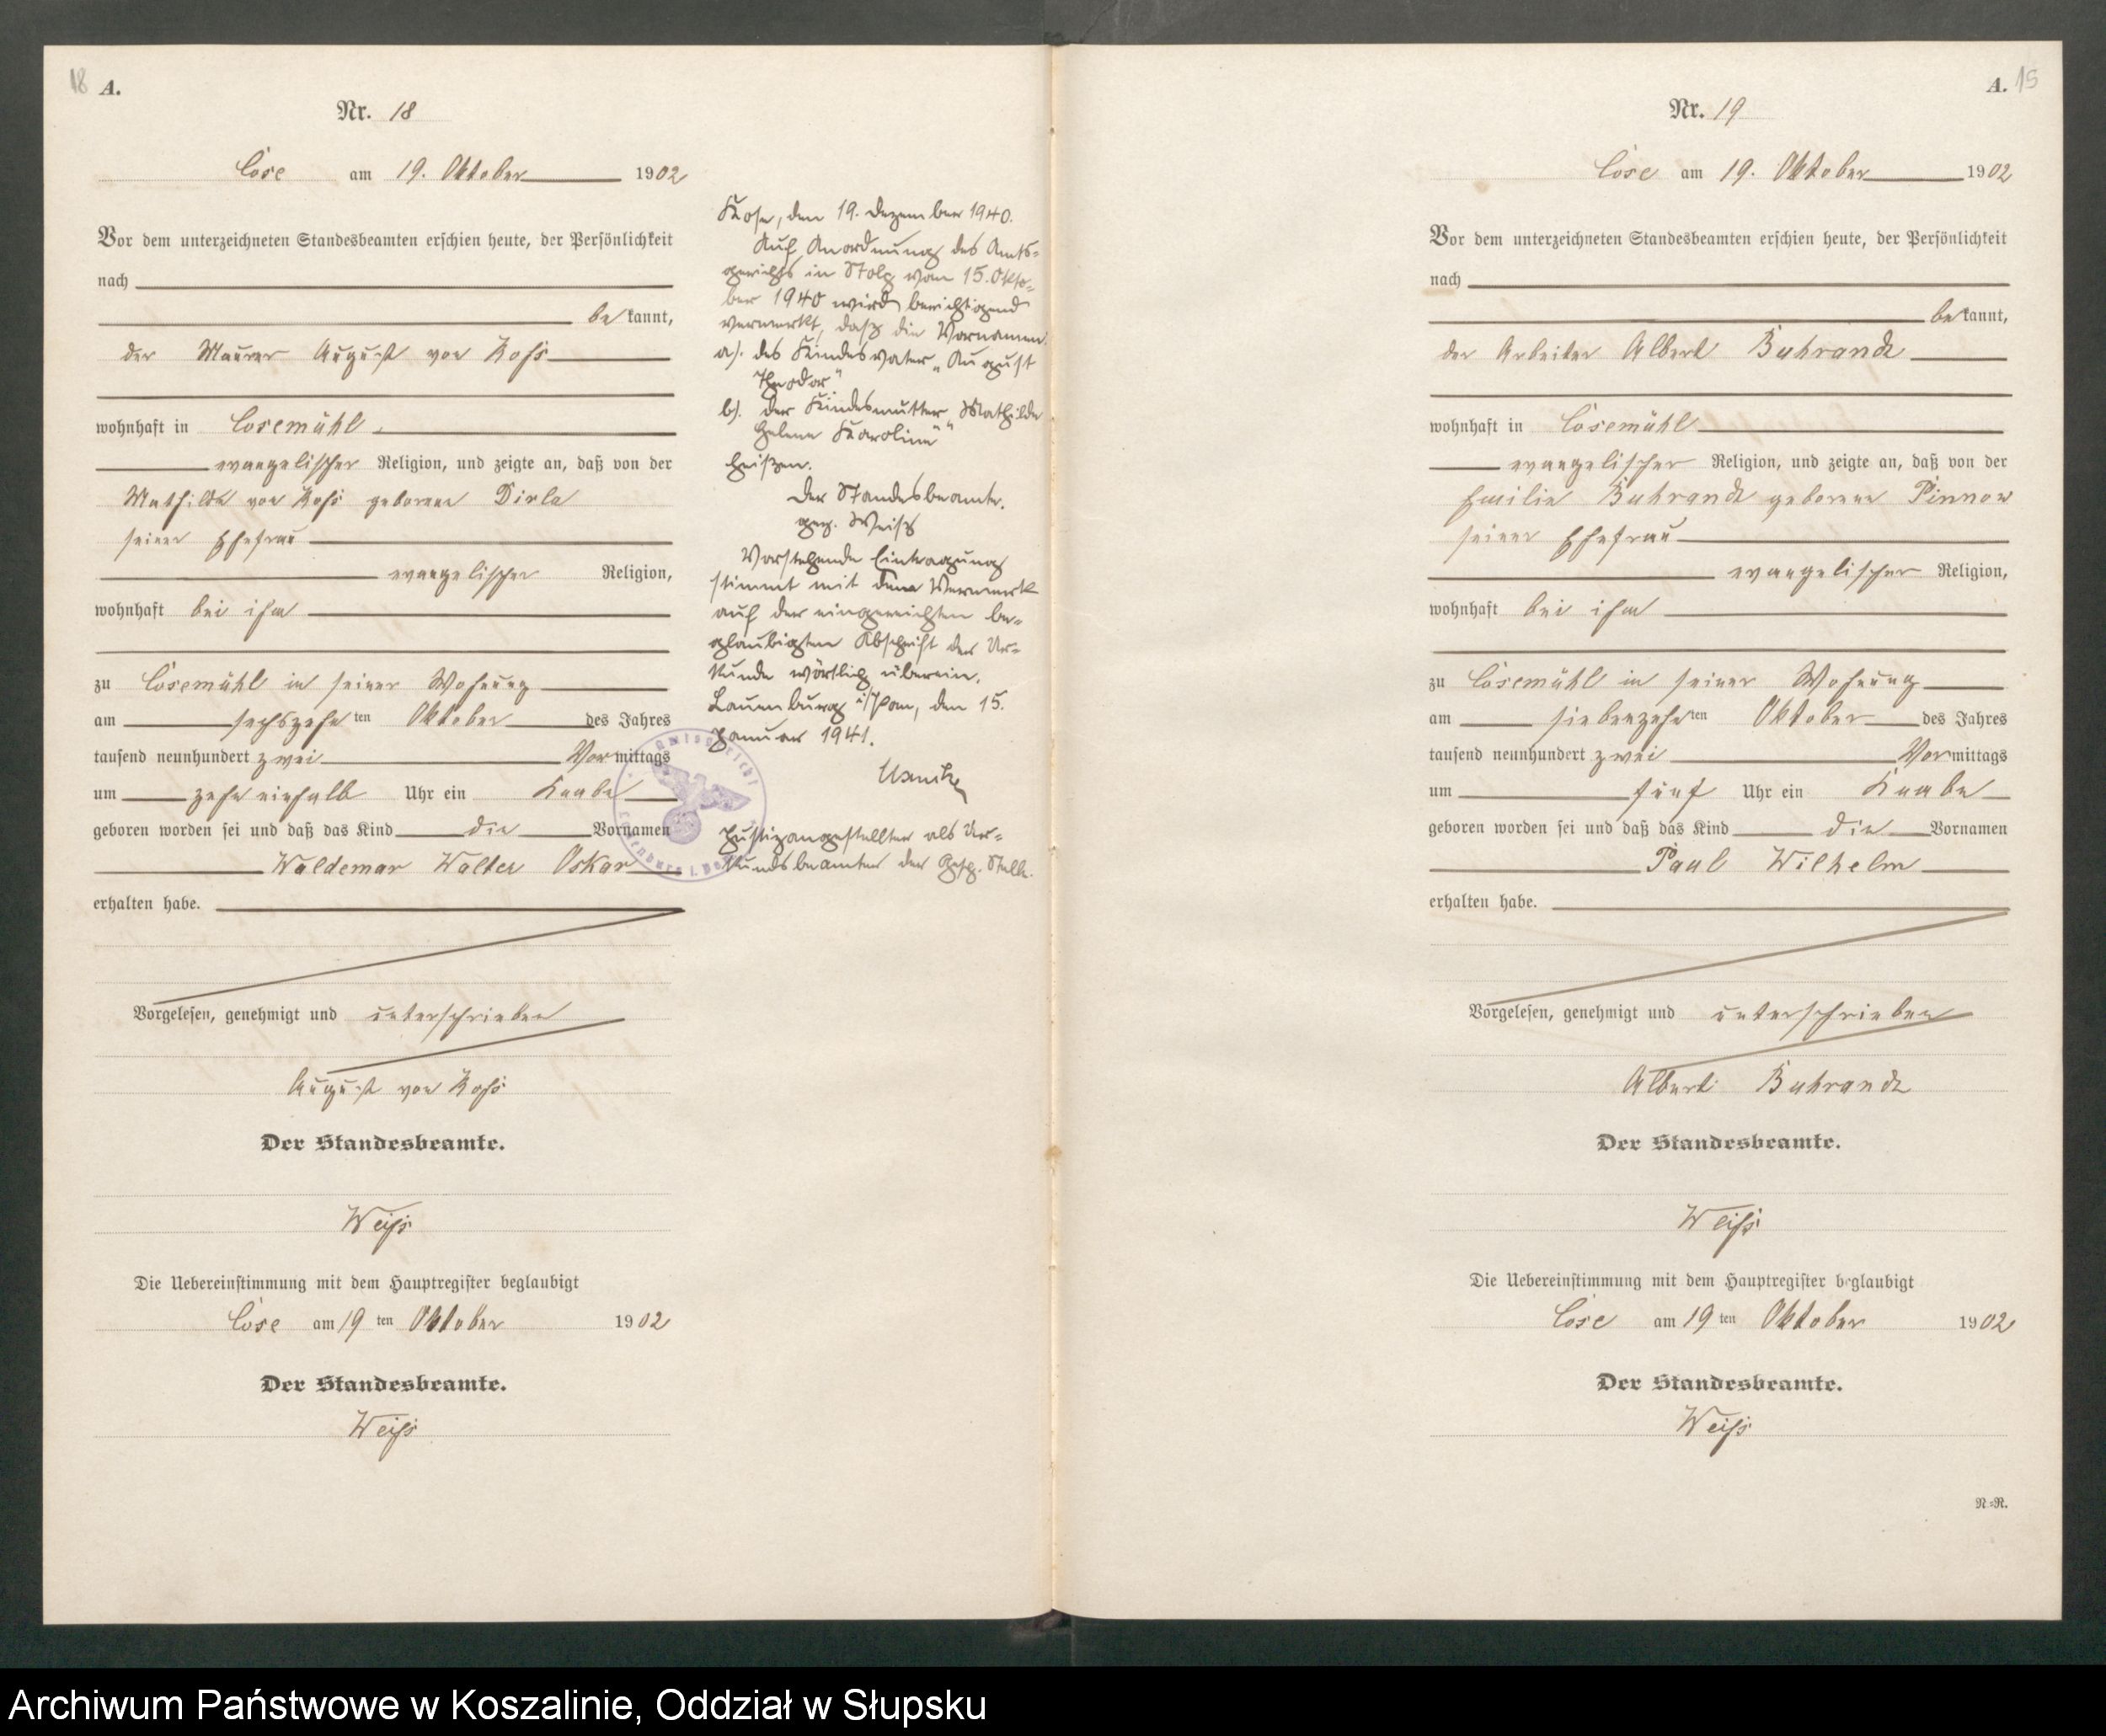 18 A.
Nr. 18
Cose am 19. Oktober 1902
Vor dem unterzeichneten Standesbeamten erschien heute, der Persönlichkeit
nach
be kannt,
der Maurer August von
wohnhaft in Cosemühl
evangelischer Religion, und zeigte an, daß von der
Mathilde von geborene Dirla
seiner Ehefrau
evangelischer Religion,
wohnhaft bei ihm
zu Cosemühl in seiner Wohnung
am sechszehn ten Oktober des Jahres
tausend neunhundert zwei Vormittags
um zehn einhalb Uhr ein Knabe
geboren worden sei und daß das Kind die Vornamen
Waldemar Walter Oskar
erhalten habe.
Vorgelesen, genehmigt und unterschrieben
August von
Der Standesbeamte.
Weiß
Die Uebereinstimmung mit dem Hauptregister beglaubigt
Cose am 19 ten Oktober 1902
Der Standesbeamte.
Weiß
Kose, den 19. Dezember 1940.
Auf Anordnung des Amts-
gerichts in Stolp vom 15. Okto-
ber 1940 wird berichtigend
vermerkt, daß die Vornamen
a). des Kindesvaters „August
Theodor"
b). der Kindesmutter Mathilde
Helene Karoline"
heißen.
Der Standesbeamte.
gez. Weiß
Vorstehende Eintragung
stimmt mit dem Vermerk
auf der eingereichten be-
glaubigten Abschrift der Ur-
kunde wörtlich überein.
Lauenburg i/Pom, den 15.
Januar 1941.
Justizangestellter als Ur-
kundsbeamter der Gesch. Stelle.
Amtsgericht
Lauenburg i. Pom
A. 19
Nr. 19
Cose am 19. Oktober 1902
Vor dem unterzeichneten Standesbeamten erschien heute, der Persönlichkeit
nach
be kannt,
der Arbeiter Albert Buhrandt
wohnhaft in Cosemühl
evangelischer Religion, und zeigte an, daß von der
Emilie Buhrandt geborene Pinnow
seiner Ehefrau
evangelischer Religion,
wohnhaft bei ihm
zu Cosemühl in seiner Wohnung
am siebenzehn ten Oktober des Jahres
tausend neunhundert zwei Vormittags
um fünf Uhr ein Knabe
geboren worden sei und daß das Kind die Vornamen
Paul Wilhelm
erhalten habe.
Vorgelesen, genehmigt und unterschrieben
Albert Buhrandt
Der Standesbeamte.
Weiß
Die Uebereinstimmung mit dem Hauptregister beglaubigt
Cose am 19 ten Oktober 1902
Der Standesbeamte.
Weiß
N=R.
Archiwum Państwowe w Koszalinie, Oddział w Słupsku